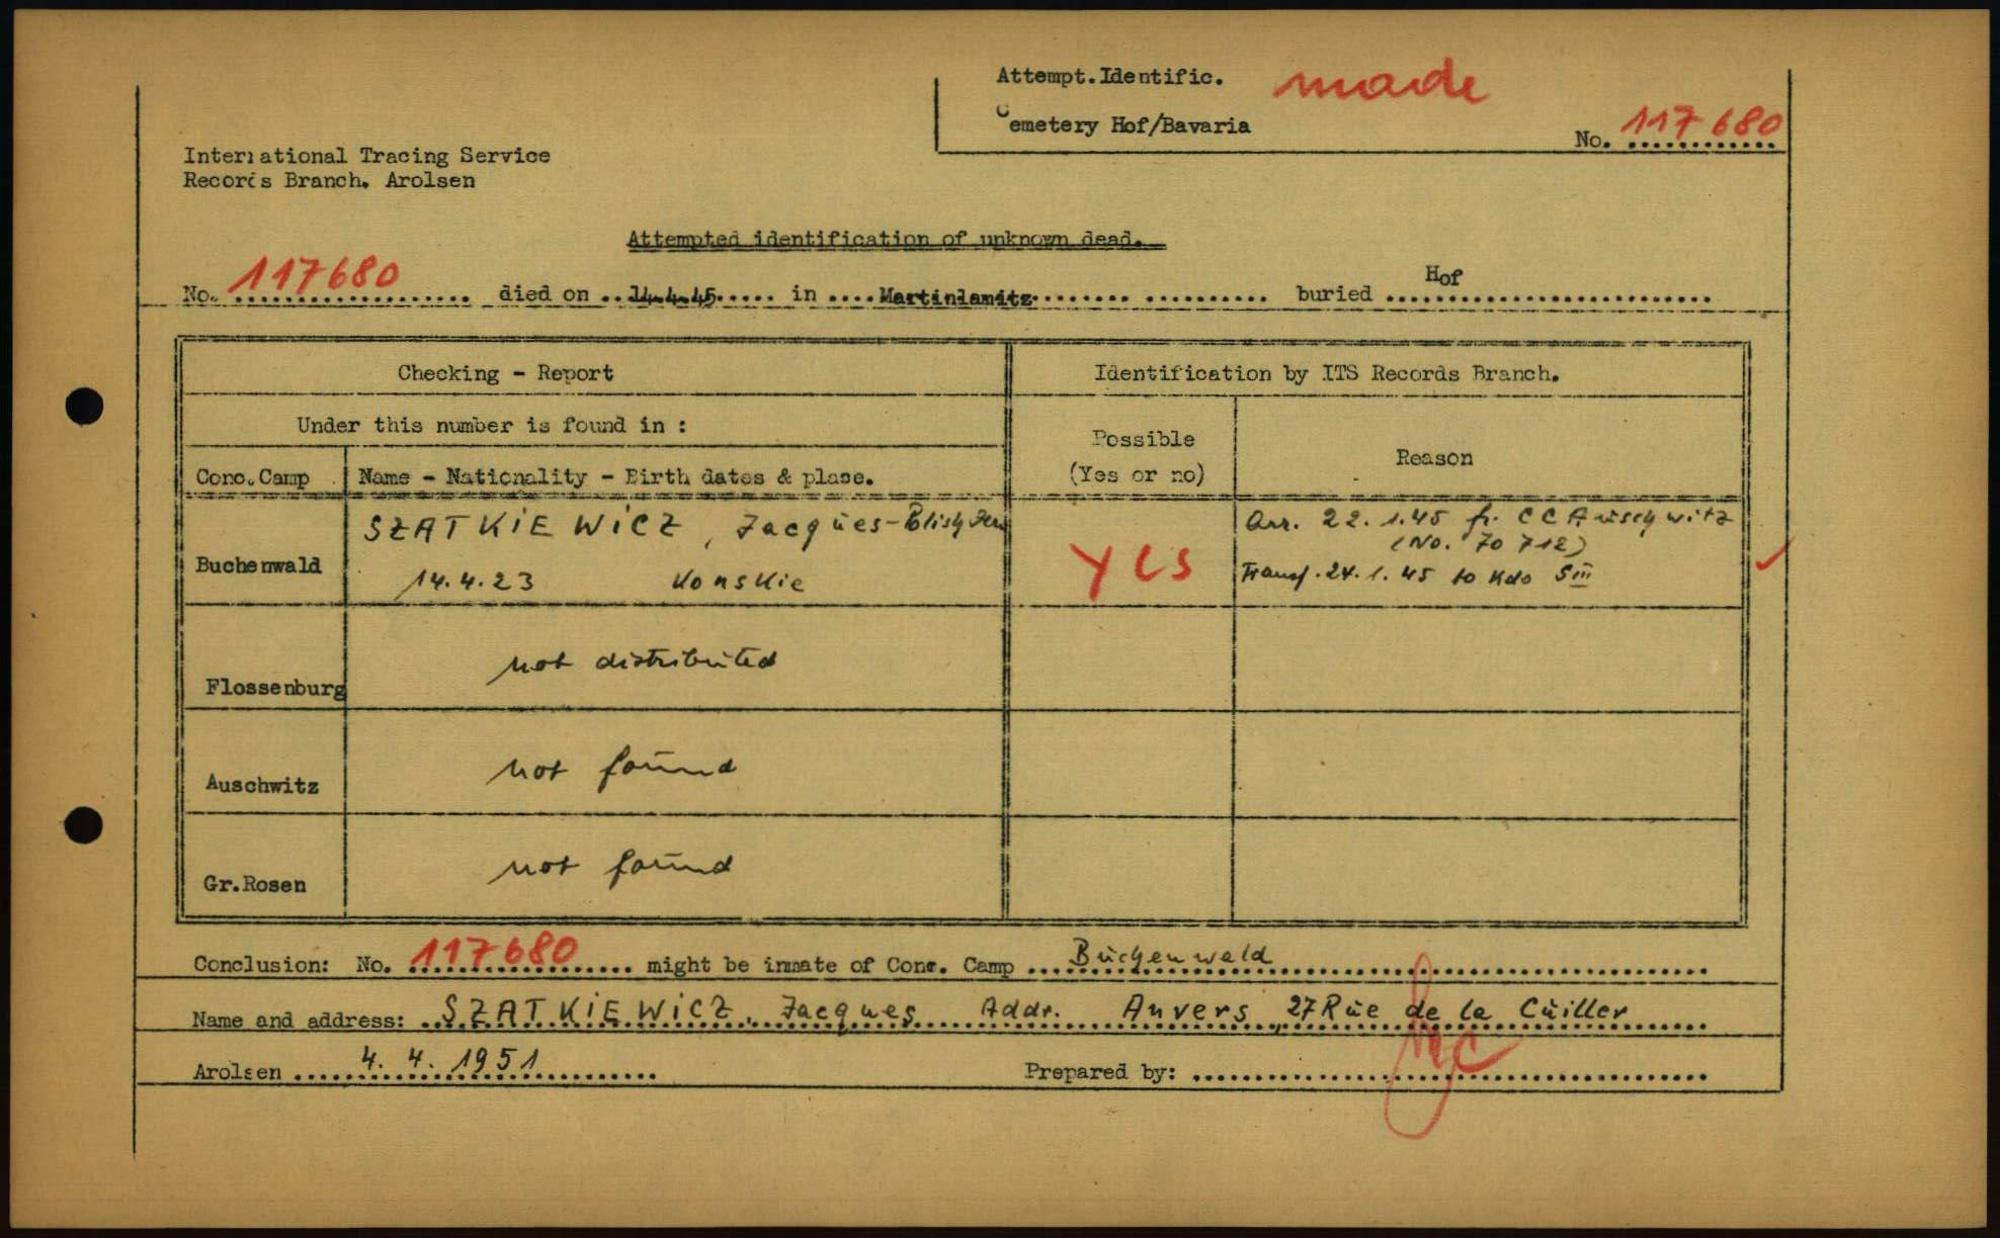 Attempt.Identific. made
Cemetery Hof/Bavaria
No. 117 680
International Tracing Service
Records Branch. Arolsen
Attempted identification of unknown dead.
No. 117680 died on 14.4.45 in Martinlamitz buried Hof
Checking - Report
Identification by ITS Records Branch.
Under this number is found in :
Possible
(Yes or no)
Reason
Conc.Camp
Name - Nationality - Birth dates & place.
Buchenwald
SZATKIEWICZ, Jacques - Polish Jew
14.4.23 Konskie
Yes
Arr. 22.1.45 fr. CC Auschwitz
(No. 70 712)
Transf. 24.1.45 to Kdo SIII
Flossenburg
not distributed
Auschwitz
not found
Gr.Rosen
not found
Conclusion: No. 117680 might be inmate of Conc. Camp Buchenwald
Name and address: SZATKIEWICZ, Jacques Addr. Anvers, 27 Rue de la Cuiller
Arolsen 4. 4. 1951
Prepared by: